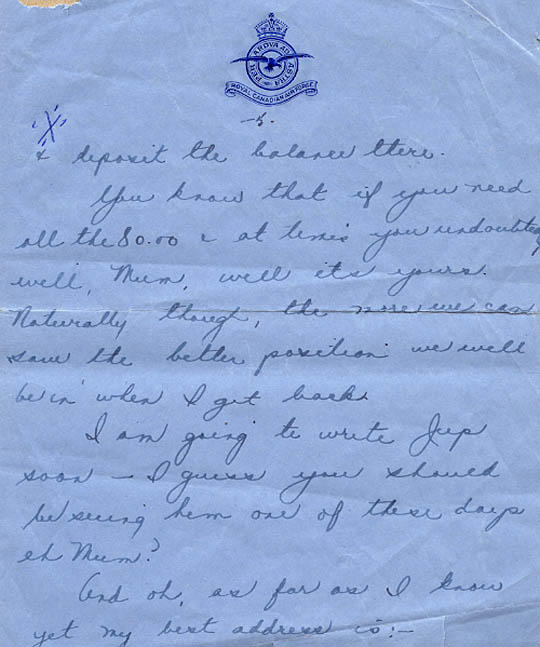 PER ARDVA AD ASTRA
ROYAL CANADIAN AIR FORCE
-5.
X
& deposit the balance there.
You know that if you need
all the 80.00 & at times you undoubtedly
will, Mum, well its yours.
Naturally though, the more we can
save the better position we will
be in when I get back.
I am going to write Jep
soon – I guess you should
be seeing him one of these days
eh Mum?
And oh, as far as I know
yet my best address is:–